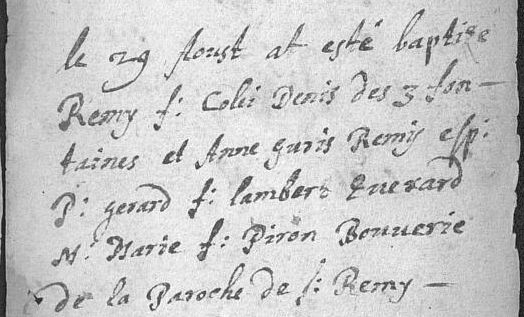 le 29 Aoust at esté baptize
Remy f: Colei Denis des 3 fon-
taines et Anne guris Remis esp:
P: gerard f: lambert Querard
M: Marie f: Piron Bouuerie
de la Paroche de S: Remy -